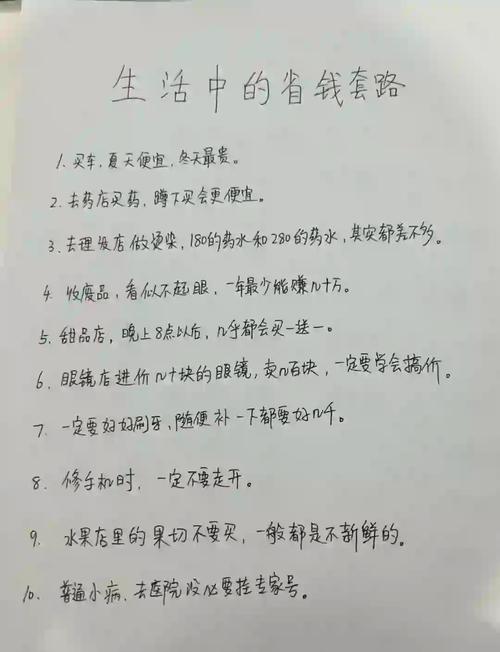 生活中的省钱套路
1. 买车,夏天便宜,冬天最贵。
2. 去药店买药,蹲下买会更便宜。
3. 去理发店做烫染,180的药水和280的药水,其实都差不多。
4. 收废品,看似不起眼,一年最少能赚几十万。
5. 甜品店,晚上8点以后,几乎都会买一送一。
6. 眼镜店进价几十块的眼镜,卖几百块,一定要学会搞价。
7. 一定要好好刷牙,随便补一下都要好几千。
8. 修手机时,一定不要走开。
9. 水果店里的果切不要买,一般都是不新鲜的。
10. 普通小病、去医院没必要挂专家号。